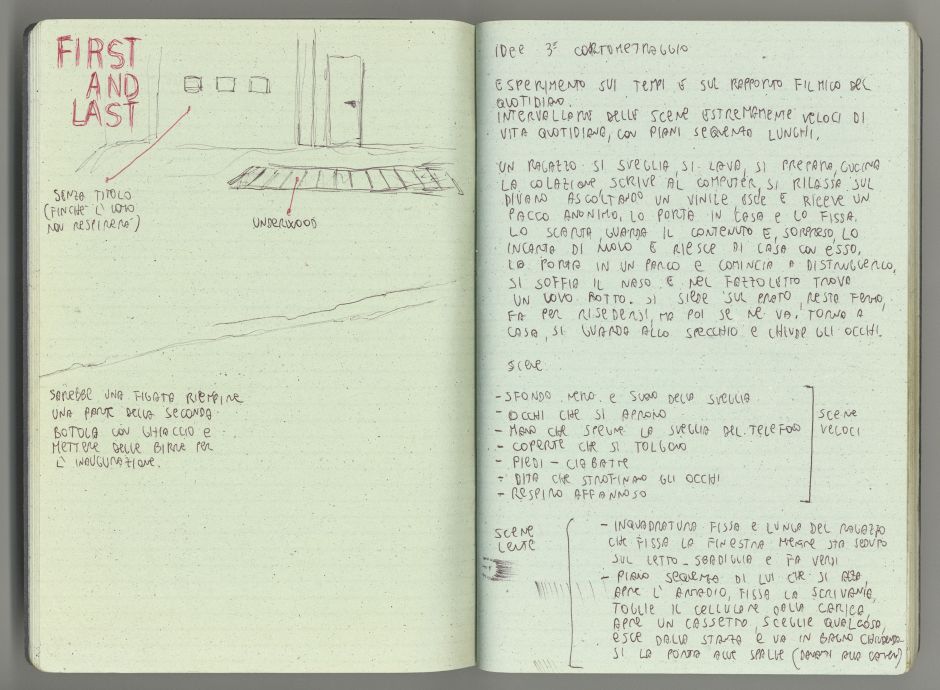 FIRST
AND
LAST
SENZA TITOLO
(FINCHÈ L'UOMO
NON RESPIRERÀ)
UNDERWOOD
SAREBBE UNA FIGATA RIEMPIRE
UNA PARTE DELLA SECONDA
BOTOLA CON GHIACCIO E
METTERE DELLE BIRRE PER
L'INAUGURAZIONE.
IDEE 3° CORTOMETRAGGIO
ESPERIMENTO SUI TEMPI E SUL RAPPORTO FILMICO DEL
QUOTIDIANO.
INTERVALLARE DELLE SCENE ESTREMAMENTE VELOCI DI
VITA QUOTIDIANA, CON PIANI SEQUENZA LUNGHI.
UN RAGAZZO SI SVEGLIA, SI LAVA, SI PREPARA, CUCINA
LA COLAZIONE SCRIVE AL COMPUTER, SI RILASSA SUL
DIVANO ASCOLTANDO UN VINILE ESCE E RICEVE UN
PACCO ANONIMO, LO PORTA IN CASA E LO FISSA.
LO SCARTA, GUARDA IL CONTENUTO E, SORPRESO, LO
INCARTA DI NUOVO E RIESCE DI CASA CON ESSO,
LO PORTA IN UN PARCO E COMINCIA A DISTRUGGERLO,
SI SOFFIA IL NASO E NEL FAZZOLETTO TROVA
UN UOVO ROTTO. SI SIEDE SUL PRATO, RESTA FERMO,
FA PER RISEDERSI, MA POI SE NE VA. TORNA A
CASA, SI GUARDA ALLO SPECCHIO E CHIUDE GLI OCCHI.
SCENE
- SFONDO NERO E SUONO DELLA SVEGLIA
- OCCHI CHE SI APRONO
- MANO CHE SPEGNE LA SVEGLIA DEL TELEFONO
- COPERTE CHE SI TOLGONO
- PIEDI - CIABATTE
- DITA CHE STROFINANO GLI OCCHI
- RESPIRO AFFANNOSO
SCENE
VELOCI
SCENE
LENTE
- INQUADRATURA FISSA E LUNGA DEL RAGAZZO
CHE FISSA LA FINESTRA MENTRE STA SEDUTO
SUL LETTO - SBADIGLIA E FA VERSI
- PIANO SEQUENZA DI LUI CHE SI ALZA,
APRE L'ARMADIO, FISSA LA SCRIVANIA,
TOGLIE IL CELLULARE DALLA CARICA,
APRE UN CASSETTO, SCEGLIE QUALCOSA,
ESCE DALLA STANZA E VA IN BAGNO CHIUDENDO-
SI LA PORTA ALLE SPALLE (DAVANTI ALLA